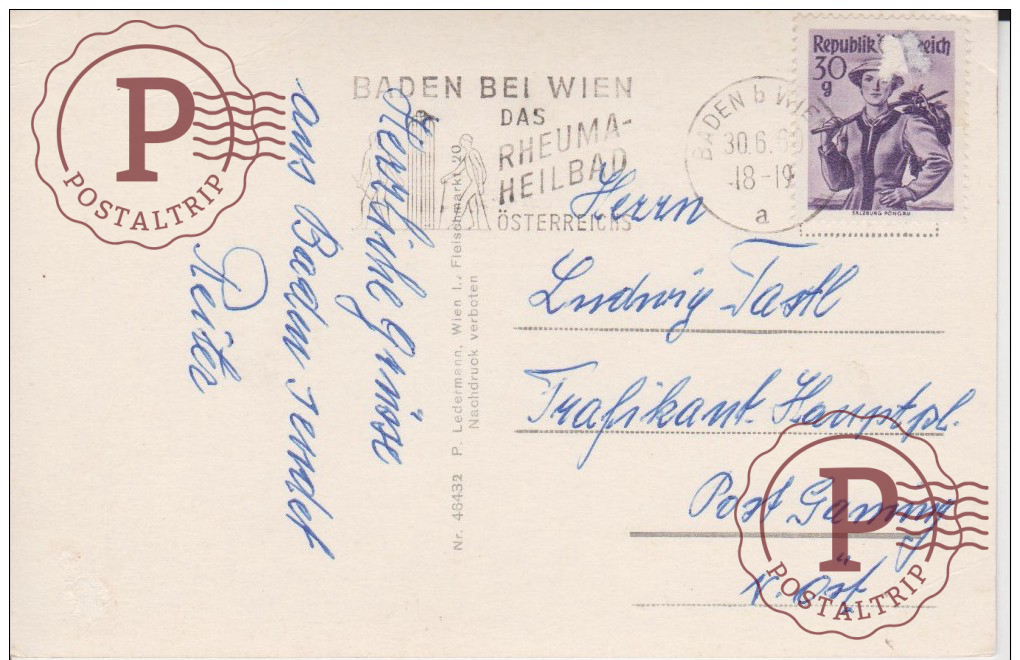 BADEN BEI WIEN
DAS
RHEUMA-
HEILBAD
ÖSTERREICHS
BADEN b WIEN
30.6.
18-19
a
Republik Österreich
30
g
SALZBURG PONGAU
Herzliche Grüsse
aus Baden sendet
Nr. 46432 P. Ledermann, Wien I., Fleischmarkt 20
Nachdruck verboten
Herrn
Ludwig Tastl
Trafikant Hauptpl.
Post Gaming
N. Öst
P
POSTALTRIP
P
POSTALTRIP